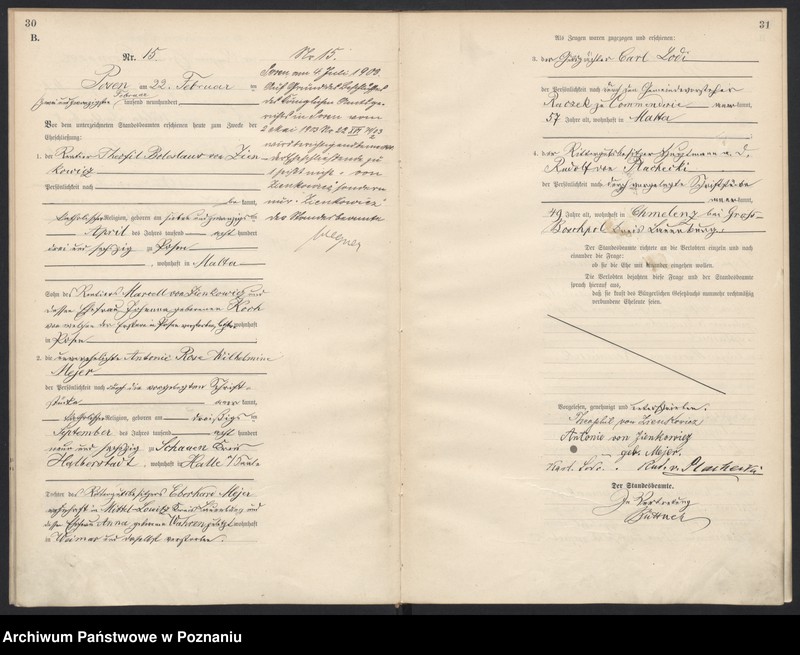 30
B.
Nr. 15
Posen am 22. Februar
tausend neunhundert
Vor dem unterzeichneten Standesbeamten erschienen heute zum Zwecke der
Eheschließung:
1. der Rentier Theofil Boleslaus von Zien
kowicz
der Persönlichkeit nach
be kannt,
katholischer Religion, geboren am sieben und zwanzigsten
April des Jahres tausend acht hundert
drei und sechzig zu Posen
, wohnhaft in Malta
Sohn des Rentiers Marcell von Zienkowicz und
dessen Ehefrau Johanna geborenen Koch
wohnhaft
in Posen
2. die unverehelichte Antonie Rosa Wilhelmine
Mejer
der Persönlichkeit nach durch die vorgelegten Schrift-
stücke kannt,
katholischer Religion, geboren am dreißigsten
September des Jahres tausend acht hundert
neun und sechzig zu Schauen Kreis
Halberstadt , wohnhaft in Halle
Tochter des Rittergutsbesitzers Eberhard Mejer
wohnhaft in Mittel Kreis Lauenburg und
dessen Ehefrau Anna geborene zuletzt wohnhaft
in Weimar und daselbst verstorben.
Nr. 15.
Posen am 4 Juli 1903.
Auf Grund des Beschlusses
des Königlichen Amtsge-
richts in Posen vom
2 Mai 1903
wird
der Eheschließende zu
nicht „von
Zienkowicz“ sondern
nur „Zienkowicz“
der Standesbeamte
31
Als Zeugen waren zugezogen und erschienen:
3. der Carl Lodi
der Persönlichkeit nach durch den Gemeindevorsteher
Raczek zu Commenderie kannt,
57 Jahre alt, wohnhaft in Malta
4. der Rittergutsbesitzer Hauptmann a. D.
Rudolf von Plachecki
der Persönlichkeit nach durch vorgelegte Schriftstücke
kannt,
49 Jahre alt, wohnhaft in Chmelenz bei Groß-
Boschpol Kreis Lauenburg.
Der Standesbeamte richtete an die Verlobten einzeln und nach
einander die Frage:
ob sie die Ehe mit einander eingehen wollen.
Die Verlobten bejahten diese Frage und der Standesbeamte
sprach hierauf aus,
daß sie kraft des Bürgerlichen Gesetzbuchs nunmehr rechtmäßig
verbundene Eheleute seien.
Vorgelesen, genehmigt und unterschrieben.
Theophil von Zienkowicz
Antonie von Zienkowicz
geb. Mejer.
Karl Lodi. Rud. v. Plachecki
Der Standesbeamte.
In Vertretung
Büttner
Archiwum Państwowe w Poznaniu